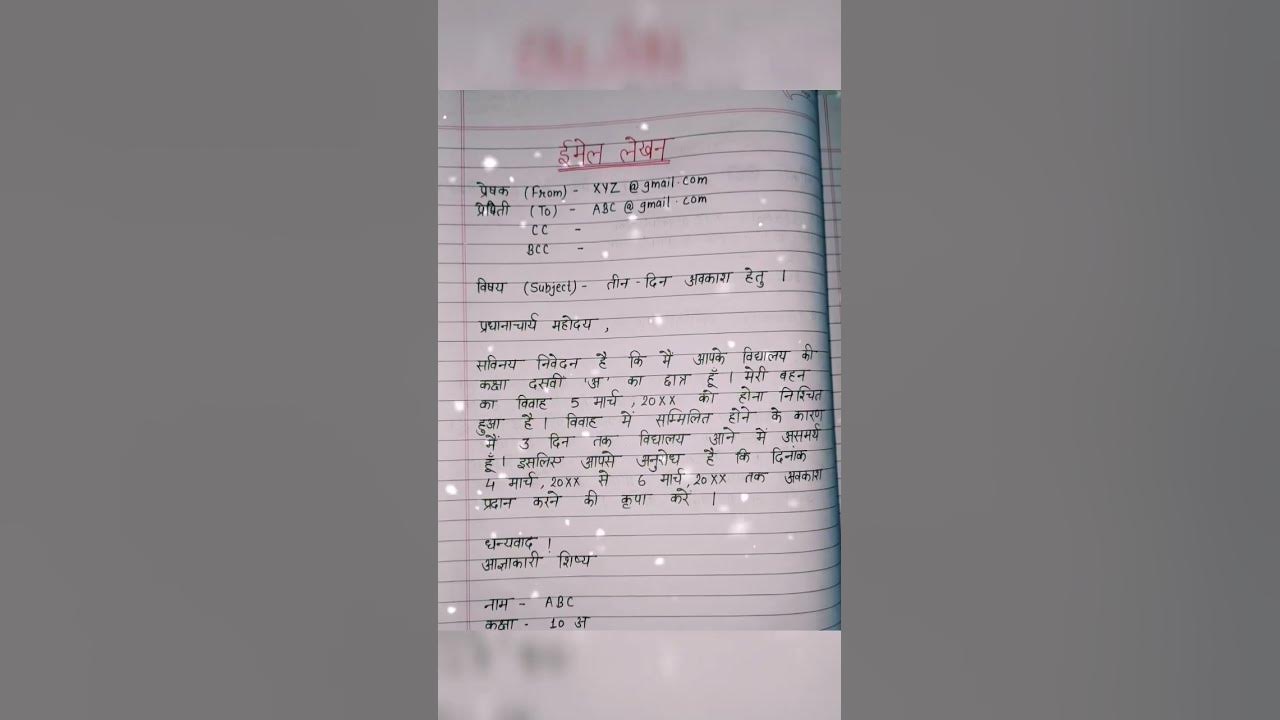 ईमेल लेखन
प्रेषक (From) - XYZ @gmail.com
प्रेषिती (To) - ABC @gmail.com
CC -
BCC -
विषय (Subject) - तीन - दिन अवकाश हेतु ।
प्रधानाचार्य महोदय ,
सविनय निवेदन है कि मैं आपके विद्यालय की
कक्षा दसवीं 'अ' का छात्र हूँ । मेरी बहन
का विवाह 5 मार्च , 20XX को होना निश्चित
हुआ है । विवाह में सम्मिलित होने के कारण
मैं 3 दिन तक विद्यालय आने में असमर्थ
हूँ । इसलिए आपसे अनुरोध है कि दिनांक
4 मार्च , 20XX से 6 मार्च, 20XX तक अवकाश
प्रदान करने की कृपा करें ।
धन्यवाद !
आज्ञाकारी शिष्य
नाम - ABC
कक्षा - 10 अ